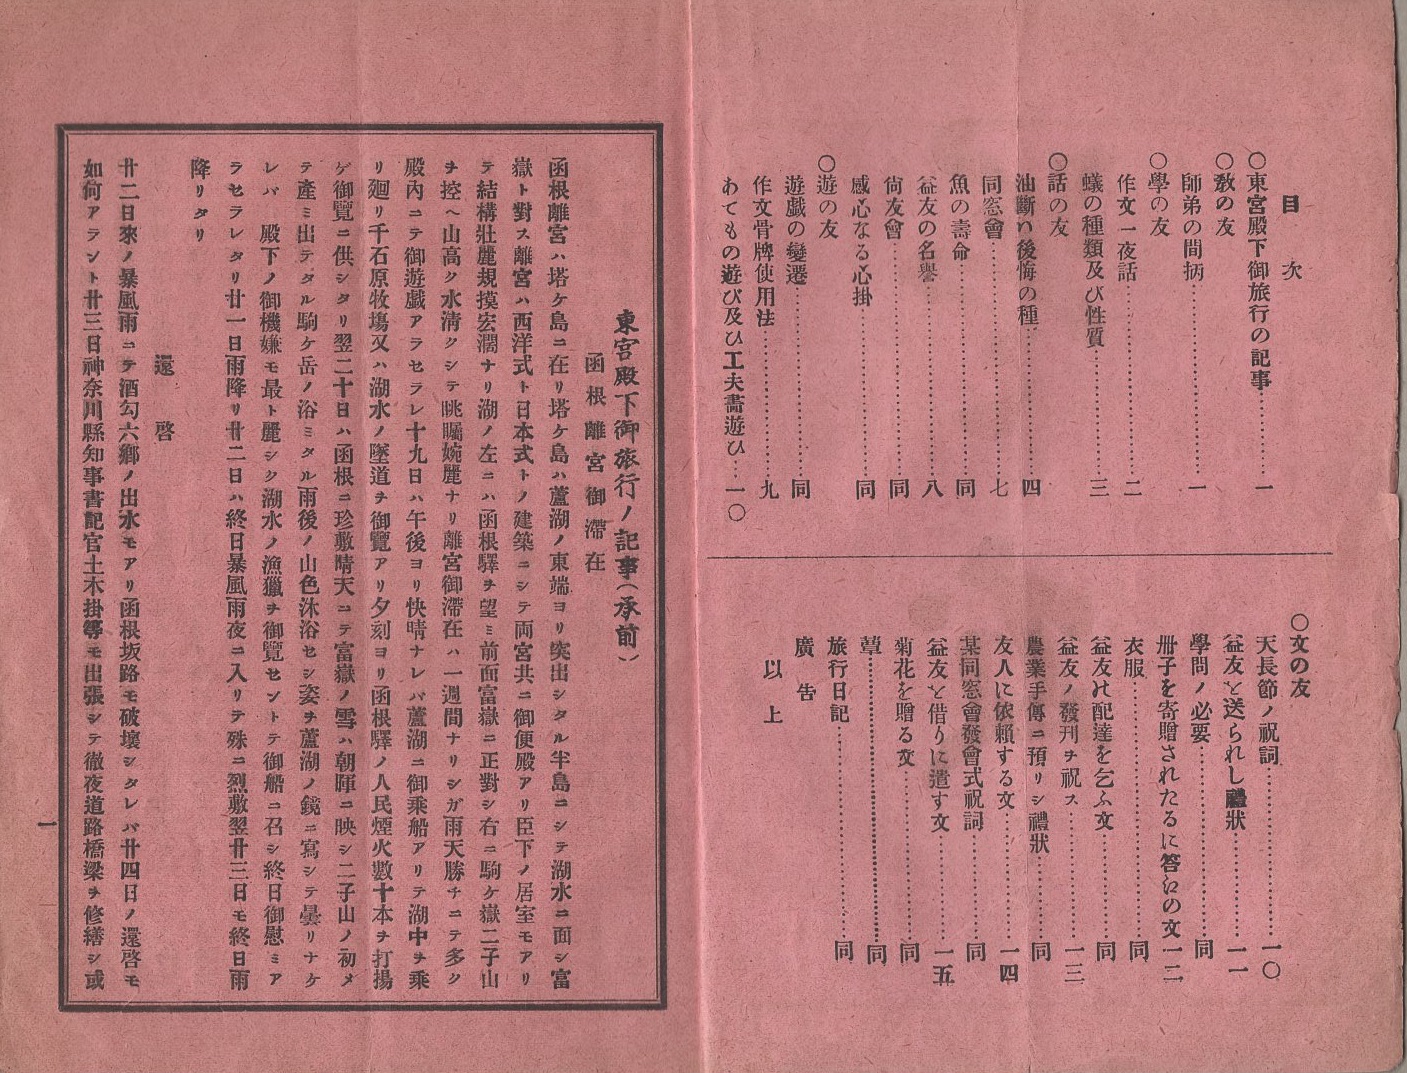 目次
〇東宮殿下御旅行の記事……一
〇敎の友
師弟の間病……一
〇學の友
作文一夜話……二
蟻の種類及び性質……三
〇話の友
油斷ハ後悔の種……四
同窓會……七
魚の壽命……同
益友の名譽……八
尙友會……同
感心なる心掛……同
〇遊の友
遊戯の變遷……同
作文骨牌使用法……九
あてもの遊び及ひ工夫畵遊ひ…一〇
〇文の友
天長節ノ祝詞……一〇
益友と送られし禮狀……一一
學問ノ必要……同
册子を寄贈されたるに答ひの文一二
衣服……同
益友の配達を乞ふ文……同
益友ノ發刊ヲ祝ス……一三
農業手傳ニ預リシ禮狀……同
友人に依頼する文……一四
某同窓會發會式祝詞……同
益友と借りに遣す文……一五
菊花を贈る文……同
蕈……同
旅行日記……同
廣告
以上
東宮殿下御旅行ノ記事(承前)
函根離宮御滯在
函根離宮ハ塔ケ島ニ在リ塔ケ島ハ蘆湖ノ東端ヨリ突出シタル半島ニシテ湖水ニ面シ富
嶽ト對ス離宮ハ西洋式ト日本式トノ建築ニシテ両宮共ニ御便殿アリ臣下ノ居室モアリ
テ結構壯麗規摸宏濶ナリ湖ノ左ニハ函根驛ヲ望ミ前面富嶽ニ正對シ右ニ駒ケ嶽二子山
ヲ控ヘ山高ク水淸クシテ眺矚婉麗ナリ離宮御滯在ハ一週間ナリシガ雨天勝チニテ多ク
殿內ニテ御遊戯アラセラレ十九日ハ午後ヨリ快晴ナレバ蘆湖ニ御乘船アリテ湖中ヲ乘
リ廻リ千石原牧塲又ハ湖水ノ墜道ヲ御覽アリ夕刻ヨリ函根驛ノ人民煙火數十本ヲ打揚
ゲ御覽ニ供シタリ翌二十日ハ函根ニ珍敷晴天ニテ富嶽ノ雪ハ朝暉ニ映シ二子山ノ初メ
テ產ミ出テタル駒ケ岳ノ浴ミタル雨後ノ山色沐浴セシ姿ヲ蘆湖ノ鏡ニ寫シテ曇リナケ
レバ 殿下ノ御機嫌モ最ト麗シク湖水ノ漁獵ヲ御覽セントテ御船ニ召シ終日御慰ミア
ラセラレタリ廿一日雨降リ廿二日ハ終日暴風雨夜ニ入リテ殊ニ烈敷翌廿三日モ終日雨
降リタリ
還啓
廿二日來ノ暴風雨ニテ酒匂六鄕ノ出水モアリ函根坂路モ破壞シタレバ廿四日ノ還啓モ
如何アラント廿三日神奈川縣知事書記官土木掛等モ出張シテ徹夜道路橋梁ヲ修繕シ或
一